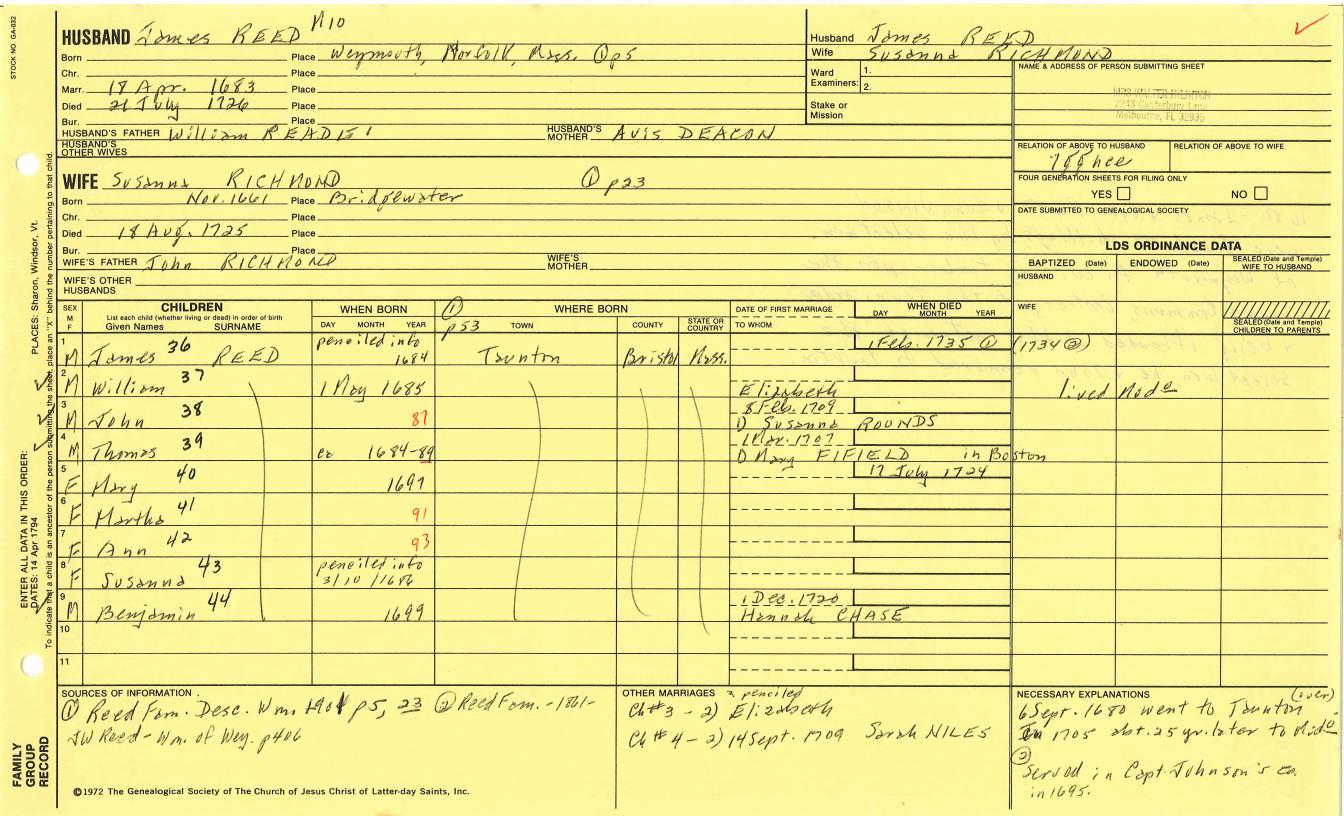 STOCK NO. GA-032
M10
HUSBAND James REED
Born Place Weymouth, Norfolk, Mass. ① p5
Chr. Place
Marr. 18 Apr. 1683 Place
Died 21 July 1726 Place
Bur. Place
HUSBAND'S FATHER William READE HUSBAND'S MOTHER Avis DEACON
HUSBAND'S OTHER WIVES
Husband James REED
Wife Susanna RICHMOND
Ward Examiners: 1.
2.
Stake or Mission
NAME & ADDRESS OF PERSON SUBMITTING SHEET
2243 Canterbury Lane
Melbourne, FL 32935
RELATION OF ABOVE TO HUSBAND RELATION OF ABOVE TO WIFE
FOUR GENERATION SHEETS FOR FILING ONLY
YES NO
DATE SUBMITTED TO GENEALOGICAL SOCIETY
WIFE Susanna RICHMOND ① p23
Born Nov. 1661 Place Bridgewater
Chr. Place
Died 18 Aug. 1725 Place
Bur. Place
WIFE'S FATHER John RICHMOND WIFE'S MOTHER
WIFE'S OTHER HUSBANDS
LDS ORDINANCE DATA
BAPTIZED (Date) ENDOWED (Date) SEALED (Date and Temple) WIFE TO HUSBAND
HUSBAND
WIFE
SEALED (Date and Temple) CHILDREN TO PARENTS
SEX M F CHILDREN WHEN BORN ① p53 WHERE BORN DATE OF FIRST MARRIAGE WHEN DIED
List each child (whether living or dead) in order of birth
Given Names SURNAME DAY MONTH YEAR TOWN COUNTY STATE OR COUNTRY TO WHOM DAY MONTH YEAR
1 M James 36 REED penciled info 1684 Taunton Bristol Mass. 1 Feb. 1735 ① (1734 ②)
2 M William 37 1 May 1685 Elizabeth lived Midd
3 M John 38 87 8 Feb. 1709
1) Susanna ROUNDS
4 M Thomas 39 ca 1684-89 1 Mar. 1707
1) Mary FIFIELD in Boston
5 F Mary 40 1697 17 July 1724
6 F Martha 41 91
7 F Ann 42 93
8 F Susanna 43 penciled info 3/10/1686
9 M Benjamin 44 1699 1 Dec. 1720
Hannah CHASE
10
11
SOURCES OF INFORMATION
① Reed Fam. Desc. Wm. 1901 p5, 23 ② Reed Fam. -1861-
JW Reed - Wm. of Wey. p406
OTHER MARRIAGES penciled
Ch #3 - 2) Elizabeth
Ch #4 - 2) 14 Sept. 1709 Sarah NILES
NECESSARY EXPLANATIONS (over)
6 Sept. 1680 went to Taunton
In 1705 abt. 25 yr. later to Midd
②
Served in Capt. Johnson's co.
in 1695.
©1972 The Genealogical Society of The Church of Jesus Christ of Latter-day Saints, Inc.
FAMILY GROUP RECORD
ENTER ALL DATA IN THIS ORDER:
DATES: 14 Apr 1794 PLACES: Sharon, Windsor, Vt.
To indicate that a child is an ancestor of the person submitting the sheet, place an "X" behind the number pertaining to that child.